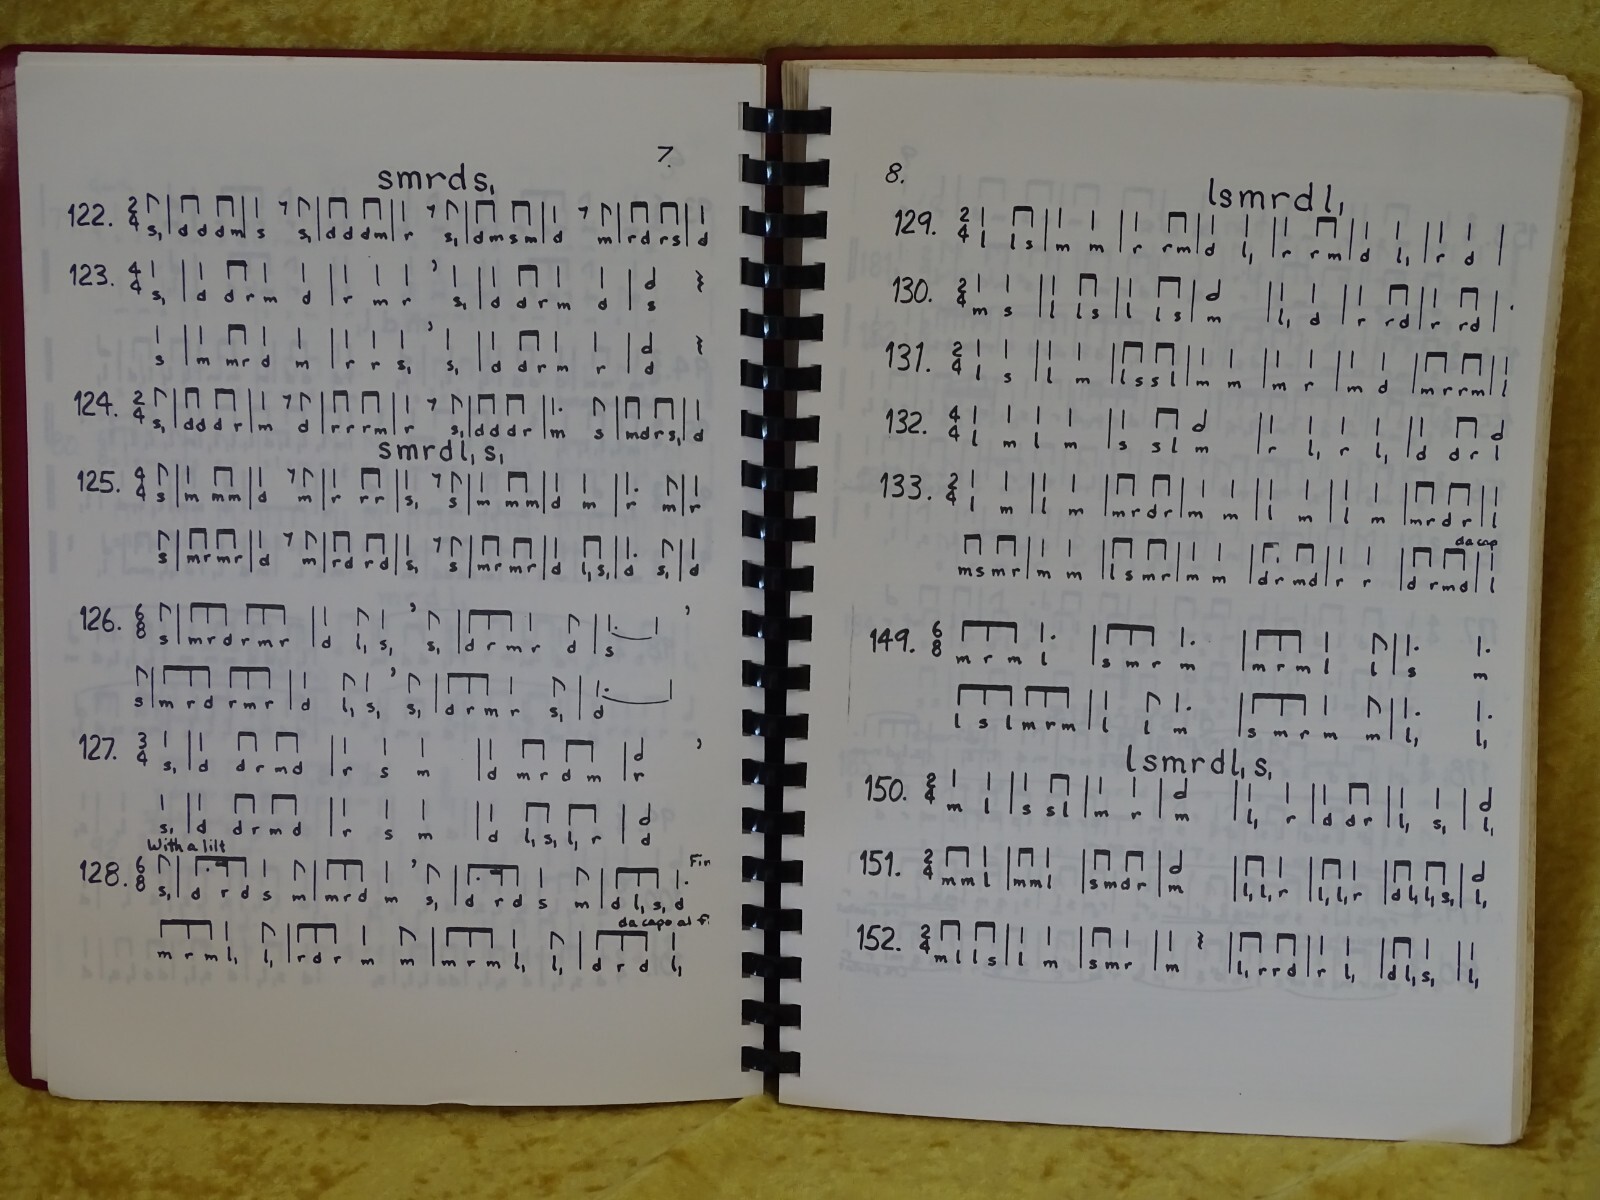 7.
smrds,
122. 2 4 s, | d d d m | s s, | d d d m | r s, | d m s m | d m | r d r s | d
123. 4 4 s, | d d r m d | r m r ’ s, | d d r m d | s
s | m m r d m | r r s, ’ s, | d d r m r | d
124. 2 4 s, | d d d r | m d | r r r m | r s, | d d d r | m s | m d r s, | d
smrdl,s,
125. 4 4 s | m m m | d m | r r r | s, s | m m m | d m | r m | r
s | m r m r | d m | r d r d | s, s | m r m r | d l, s, | d s, | d
126. 6 8 s | m r d r m r | d l, s, ’ s, | d r m r d | s ’
s | m r d r m r | d l, s, ’ s, | d r m r s, | d
127. 3 4 s, | d d r m d | r s m | d m r d m | r ’
s, | d d r m d | r s m | d l, s, l, r | d
With a lilt
128. 6 8 s, | d r d s m | m r d m ’ s, | d r d s m | d l, s, d Fin
da capo al F.
m r m l, l, | r d r m m | m r m l, l, | d r d l,
8.
lsmrdl,
129. 2 4 l l s | m m | r r m | d l, | r r m | d l, | r d |
130. 2 4 m s | l l s | l l s | m | l, d | r r d | r r d | .
131. 2 4 l s | l m | l s s l | m m | m r | m d | m r r m | l
132. 4 4 l m l m | s s l m | r l, r l, | d d r l
133. 2 4 l m | l m | m r d r | m m | l m | l m | m r d r | l
da cap
m s m r | m m | l s m r | m m | d r m d | r r | d r m d | l
149. 6 8 m r m l | s m r m | m r m l l | s m
l s l m r m | l l m | s m r m m | l, l,
lsmrdl,s,
150. 2 4 m l | s s l | m r | m | l, r | d d r | l, s, | l,
151. 2 4 m m l | m m l | s m d r | m | l, l, r | l, l, r | d l, l, s, | l,
152. 2 4 m l l s | l m | s m r | m | l, r r d | r l, | d l, s, | l,